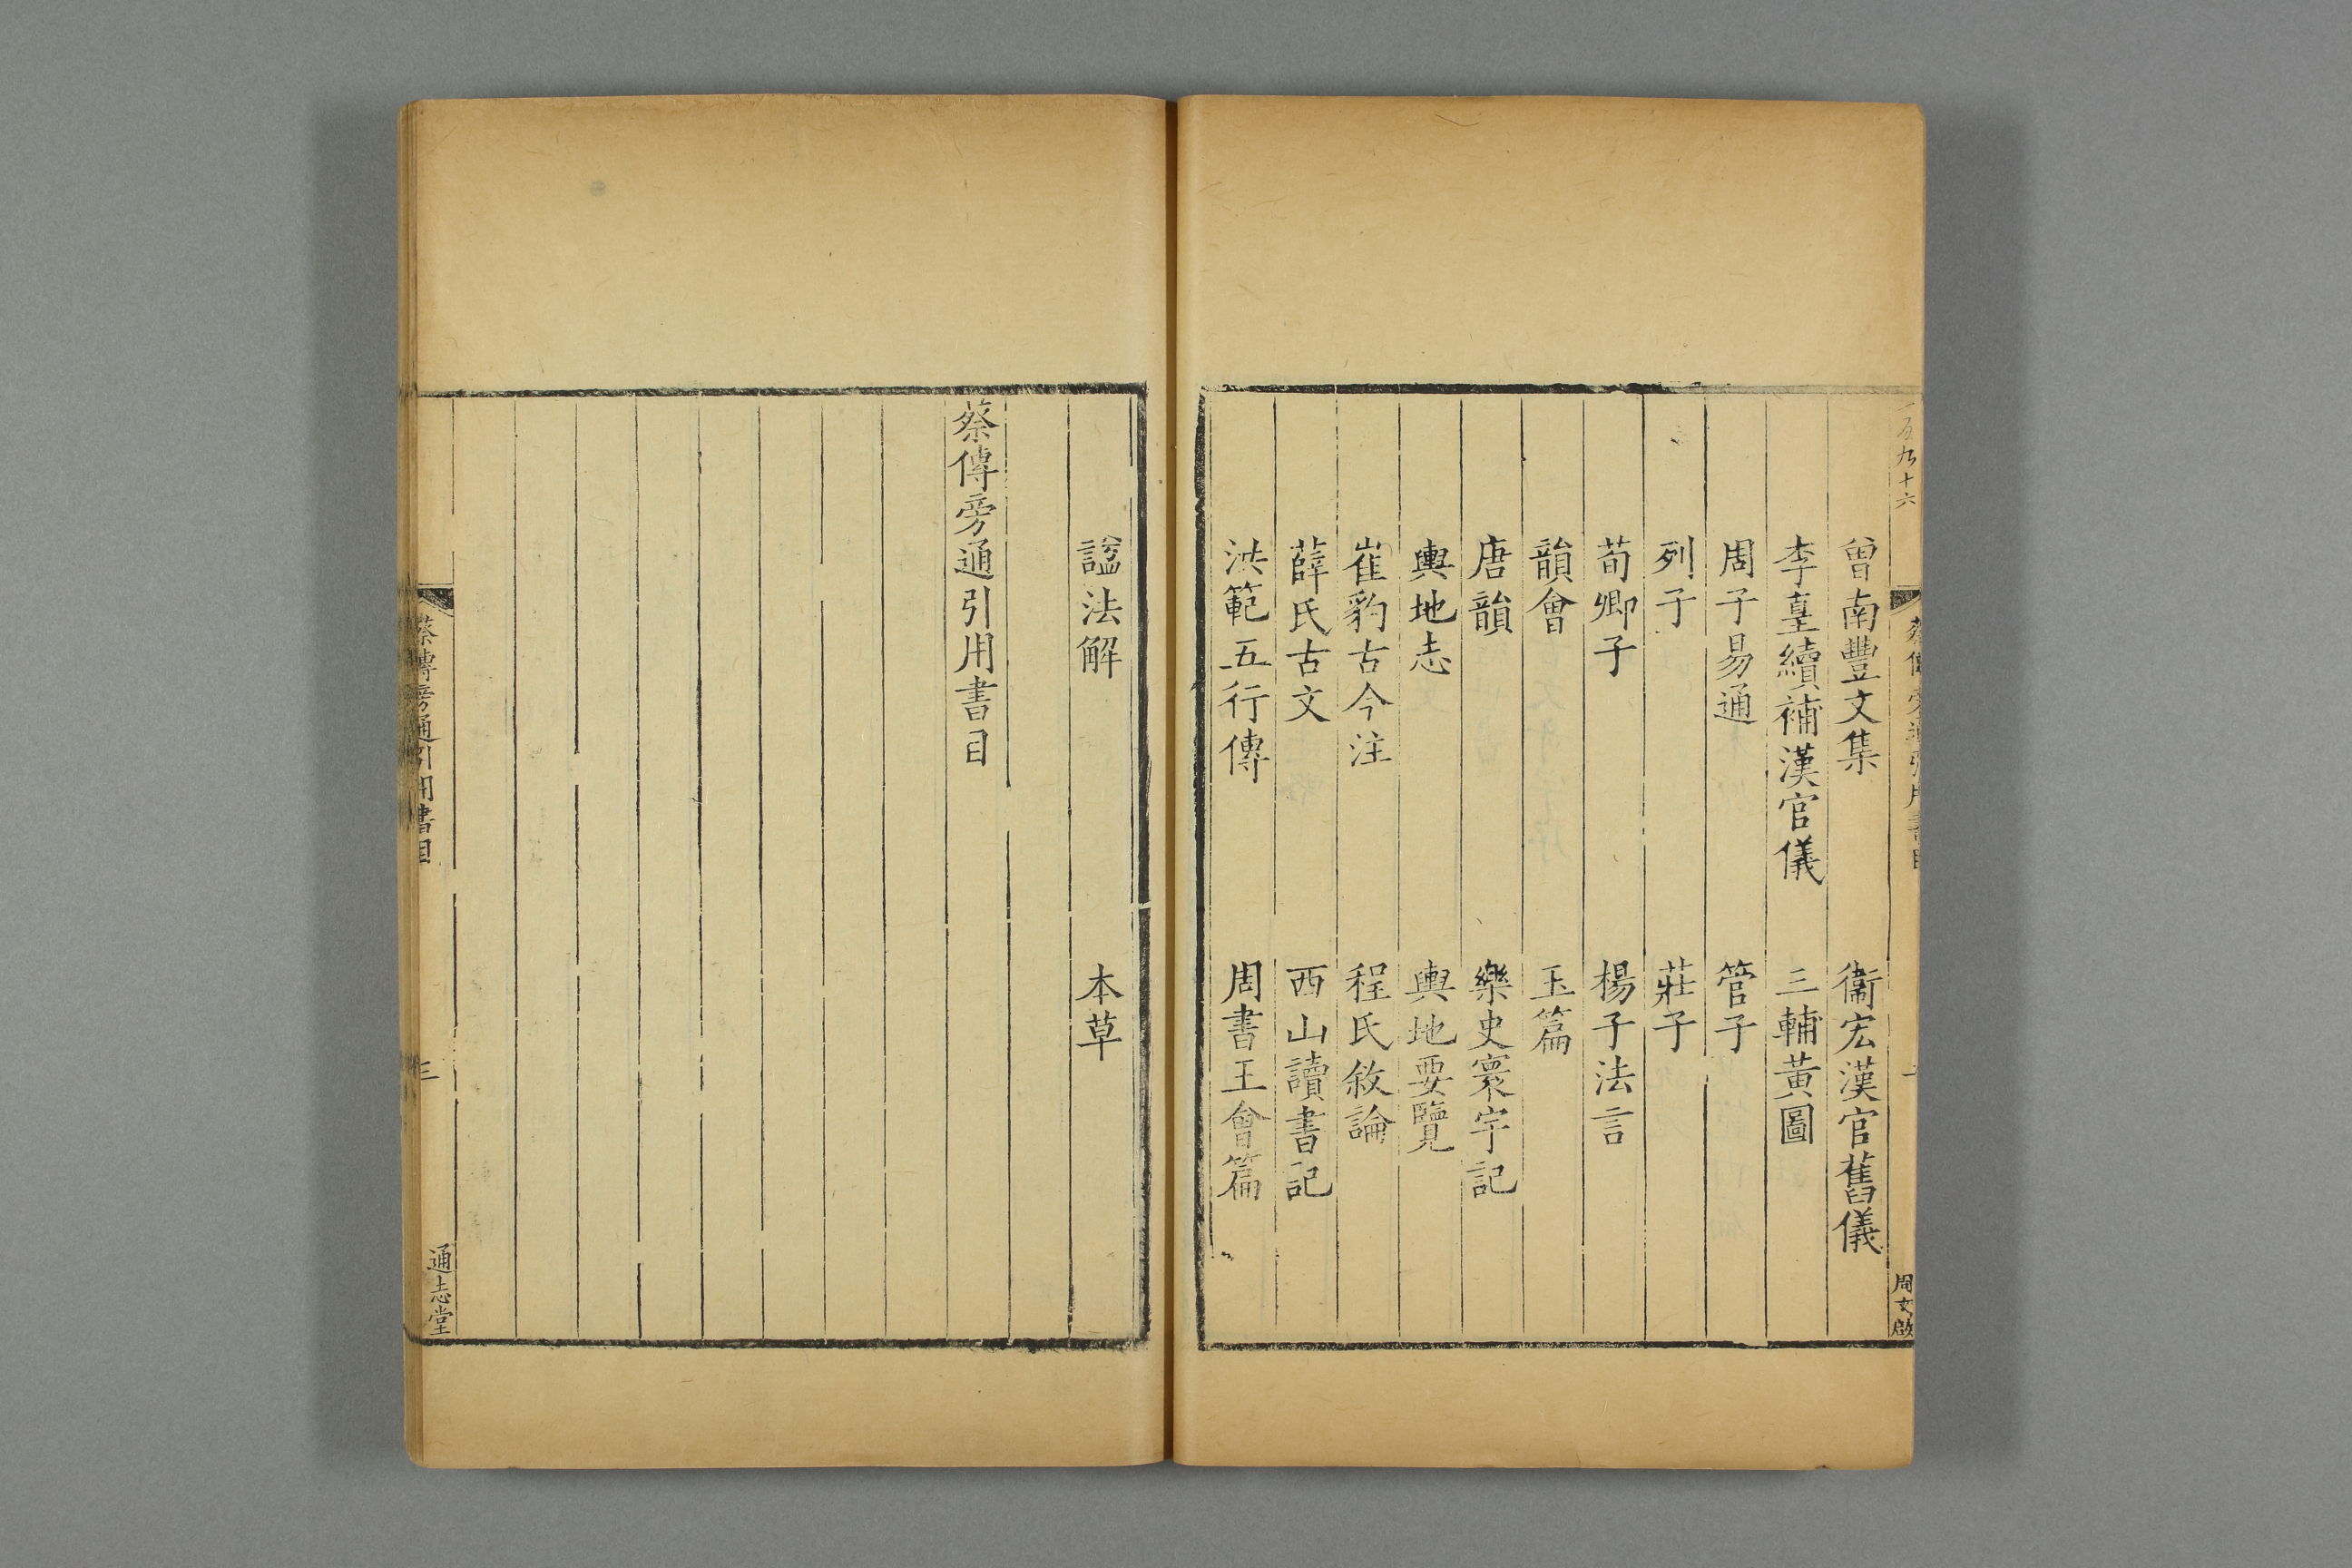 一百九十六
蔡傳旁通引用書目
二
周文啟
曾南豐文集　衞宏漢官舊儀
李臺續補漢官儀　三輔黃圖
周子易通　管子
列子　莊子
荀卿子　楊子法言
韻會　玉篇
唐韻　樂史寰宇記
輿地志　輿地要覽
崔豹古今注　程氏敘論
薛氏古文　西山讀書記
洪範五行傳　周書王會篇
諡法解　本草
蔡傳旁通引用書目
蔡傳旁通引用書目
三
通志堂